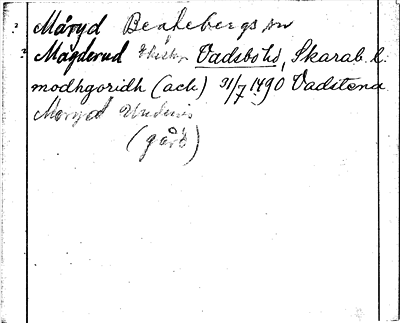 Måryd Beatebergs sn
Mågderud Vadsbo hd, Skarab. l.
modhgoridh (ack) 31/7 1490 Vadstena
Maryd Undenäs
(gård)